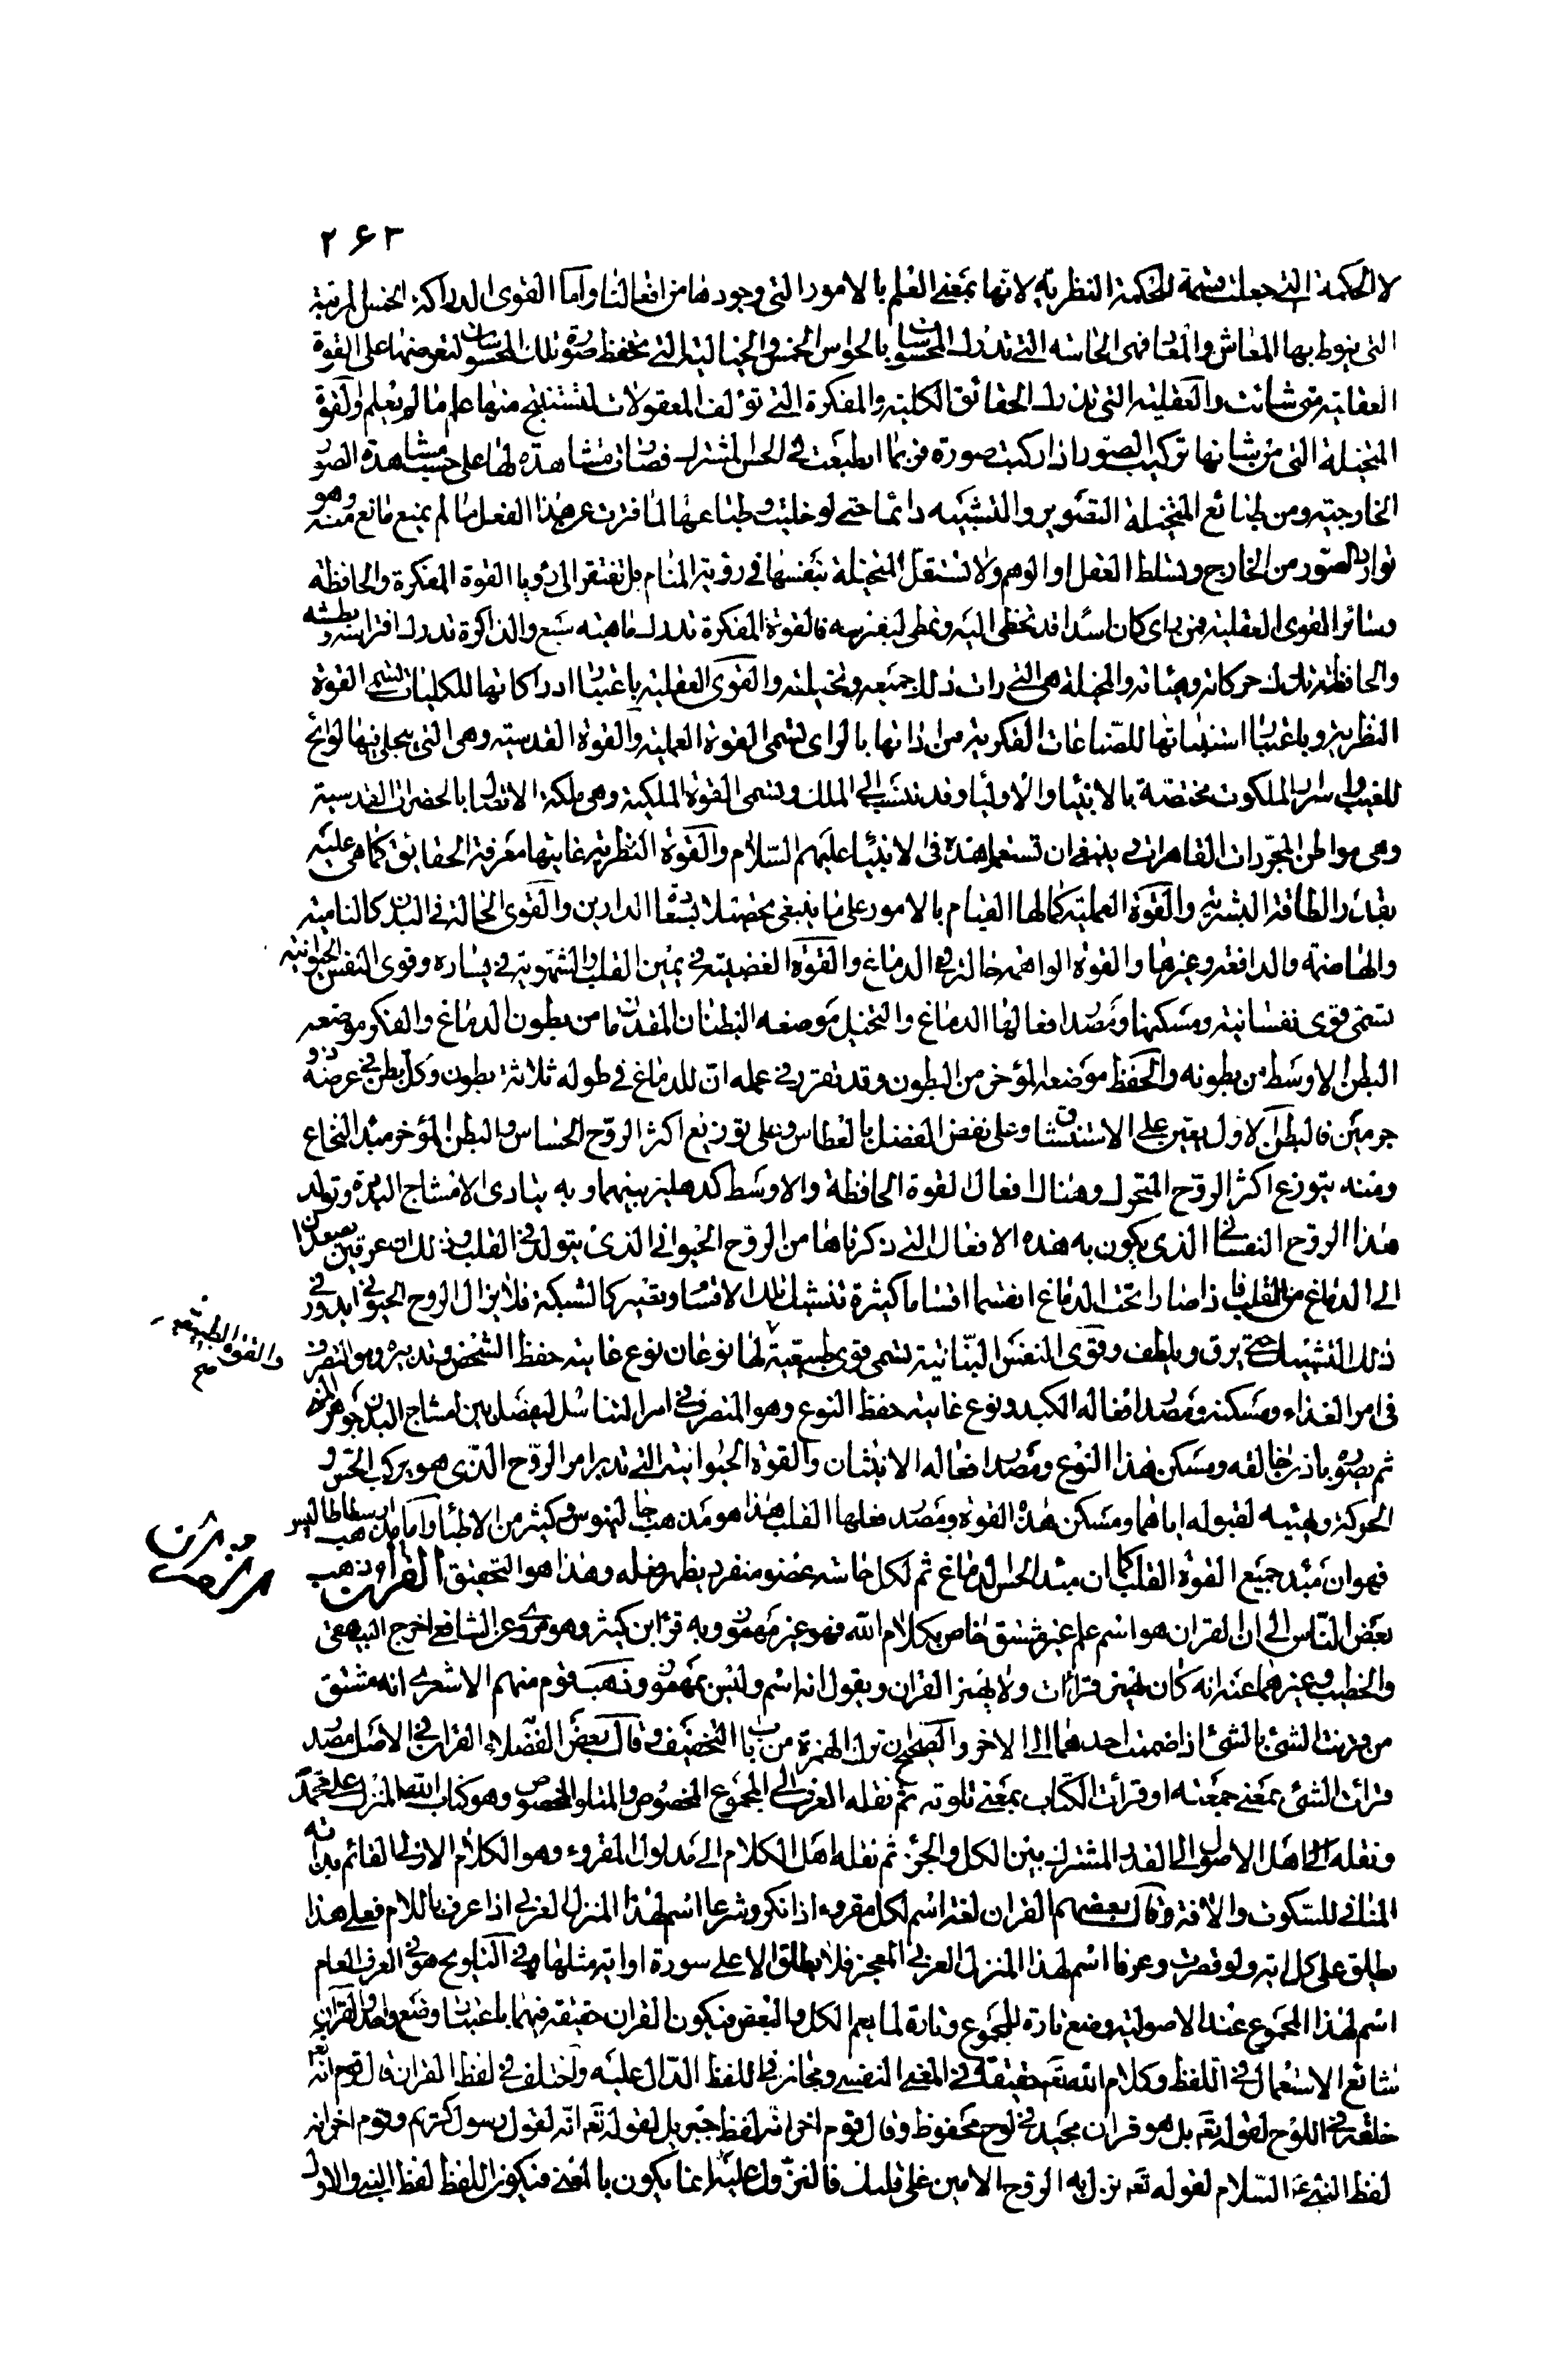 ٢٦٣
لا الحكمة التي جعلت قسمة للحكمة النظرية لانها بمعنى العلم بالامور التي وجودها من افعالنا واما القوى الدراكة الخمس المرتبة
التي ينوط بها المعاش والمعاد فهى الحاسة التي تدرك المحسوسات بالحواس الخمس والخيالية التي تحفظ صورة تلك المحسوسات لتعرضها على القوة
العقلية متى شائت والعقلية التى تدرك الحقائق الكلية والمفكرة التي تؤلف المعقولات لتستنتج منها علم ما لم يعلم والقوة
المتخيلة التى من شانها تركيب الصور اذا ركبت صورة فربما انطبعت في الحس المشترك فصارت مشاهدة لها على حسب مشاهدة الصور
الخارجية ومن طبائع المتخيلة التصوير والتشبيه دائما حتى لو خليت وطباعها لما فترت عن هذا الفعل ما لم يمنع مانع منه وهو
توارد الصور من الخارج وتسلط العقل او الوهم ولا تستقل المتخيلة بنفسها في رؤية المنام بل تفتقر الى رؤيا القوة المفكرة والحافظة
وسائر القوى العقلية فمن راى كان اسدا قد تخطى اليه وتمطى ليفترسه فالقوة المفكرة تدرك ماهية سبع والذاكرة تدرك افتراسه وبطشه
والحافظة تدرك حركاته وهيئاته والمخيلة هى التي رات ذلك جميعه وتخيلته والقوى العقلية باعتبار ادراكاتها للكليات تسمى القوة
النظرية وباعتبار استنباطها للصناعات الفكرية من ذاتها بالراى تسمى القوة العملية والقوة القدسية وهى التى يتجلى فيها لوائح
الغيب واسرار الملكوت مختصة بالانبيا والاوليا وقد تنتسب الى الملك وتسمى القوة الملكية وهى ملكة الاتصال بالحضرات القدسية
وهى مواطن المجردات القاهرات بل ينبغى ان تستعمل هذه فى الانبيا عليهم السلام والقوة النظرية غايتها معرفة الحقائق كما هى عليه
بقدر الطاقة البشرية والقوة العملية كمالها القيام بالامور على ما ينبغى محصلا بسعادة الدارين والقوى الحالة في البدن كالنامية
والهاضمة والدافعة وغيرها والقوة الواهمة حالة في الدماغ والقوة الغضبية في يمين القلب والشهوية في يساره وقوى النفس الحيوانية
تسمى قوى نفسانية ومسكنها ومصدر افعالها الدماغ والتخيل موضعه البطنان المقدمان من بطون الدماغ والفكر موضعه
البطن الاوسط من بطونه والحفظ موضعه المؤخر من البطون وقد تقرر في عمله ان للدماغ في طوله ثلاثة بطون وكل بطن في عرضه ذو
جرمين فالبطن الاول يعين على الاستنشاق وعلى نفض الفضل بالعطاس وعلى توزيع اكثر الروح الحساس والبطن المؤخر مبدا النخاع
ومنه يتوزع اكثر الروح المتحرك وهناك افعال القوة الحافظة والاوسط كدهليز بينهما وبه يتادى الاشباح المدركة وتولد
هذا الروح النفسانى الذى يكون به هذه الافعال التي ذكرناها من الروح الحيوانى الذى يتولد في القلب وذلك ان عرقين يصعدان
الى الدماغ من القلب فاذا صارا تحت الدماغ انقسما اقساما كثيرة تتشبك تلك الاقسام وتصير كالشبكة فلا يزال الروح الحيوانى يدور في
ذلك التشبيك حتى يرق ويلطف وقوى النفس النباتية تسمى قوى طبيعية لها نوعان نوع غايته حفظ الشخص وتدبيره وهو المتصرف
والقوة الطبيعية صح
فى امر الغذاء ومسكنه ومصدر افعاله الكبد ونوع غايته حفظ النوع وهو المتصرف في امر التناسل ليفصل من امشاج البدن جوهر المنى
ثم يصوره باذن خالقه ومسكن هذا النوع ومصدر افعاله الانثيان والقوة الحيوانية التي تدبر امر الروح الذى هو مركب الحس و
الحركة وتهيئه لقبوله اياهما ومسكن هذه القوة ومصدر فعلها القلب هذا هو مذهب جالينوس وكثير من الاطبا واما مذهب ارسطاطاليس
فهو ان مبدء جميع القوة القلب كما ان مبدا الحس الدماغ ثم لكل حاسة عضو منفرد يظهر فعله وهذا هو التحقيق القران وذهب
بعض الناس الى ان القران هو اسم علم غير مشتق خاص بكلام الله فهو غير مهموز وبه قرا ابن كثير وهو مروى عن الشافعى اخرج البيهقى
والخطيب وغيرهما عنه انه كان يهمز قرائت ولا يهمز القران ويقول انه اسم وليس بمهموز وذهب قوم منهم الاشعرى انه مشتق
من قرنت الشئ بالشئ اذا ضممت احدهما الى الاخر والصحيح ان ترك الهمزة من باب التخفيف وقال بعض الفضلاء القران في الاصل مصدر
قرات الشئ بمعنى جمعته او قرأت الكتاب بمعنى تلوته ثم نقله العرف الى المجموع المخصوص والمتلو المخصوص وهو كتاب الله المنزل على محمد
ونقله اهل الاصول الى القدر المشترك بين الكل والجزء ثم نقله اهل الكلام الى مدلول المقروء وهو الكلام الازلى القائم بذاته
المنافى للسكوت والافة وقال بعضهم القران لغة اسم لكل مقروء اذا نكر وشرعا اسم لهذا المنزل العربى اذا عرف باللام فعلى هذا
يطلق على كل اية ولو قصرت وعرفا اسم لهذا المنزل العربى المعجز فلا يطلق الا على سورة او اية مثلها وفى التلويح هو في العرف العام
اسم لهذا المجموع عند الاصولية وضع تارة للمجموع وتارة لما يعم الكل والبعض فيكون القران حقيقة فيهما باعتبار وضع واحد والقران
شائع الاستعمال في اللفظ وكلام الله تعالى حقيقة في المعنى النفسى ومجاز في اللفظ الدال عليه واختلف في لفظ القران قال قوم انه تعالى
خلقه في اللوح لقوله تعالى بل هو قران مجيد في لوح محفوظ وقال قوم اخر انه لفظ جبريل لقوله تعالى انه لقول رسول كريم وقوم اخر انه
لفظ النبى عليه السلام لقوله تعالى نزل به الروح الامين على قلبك فالنزول عليه انما يكون بالمعنى فيكون اللفظ لفظ النبى والاول